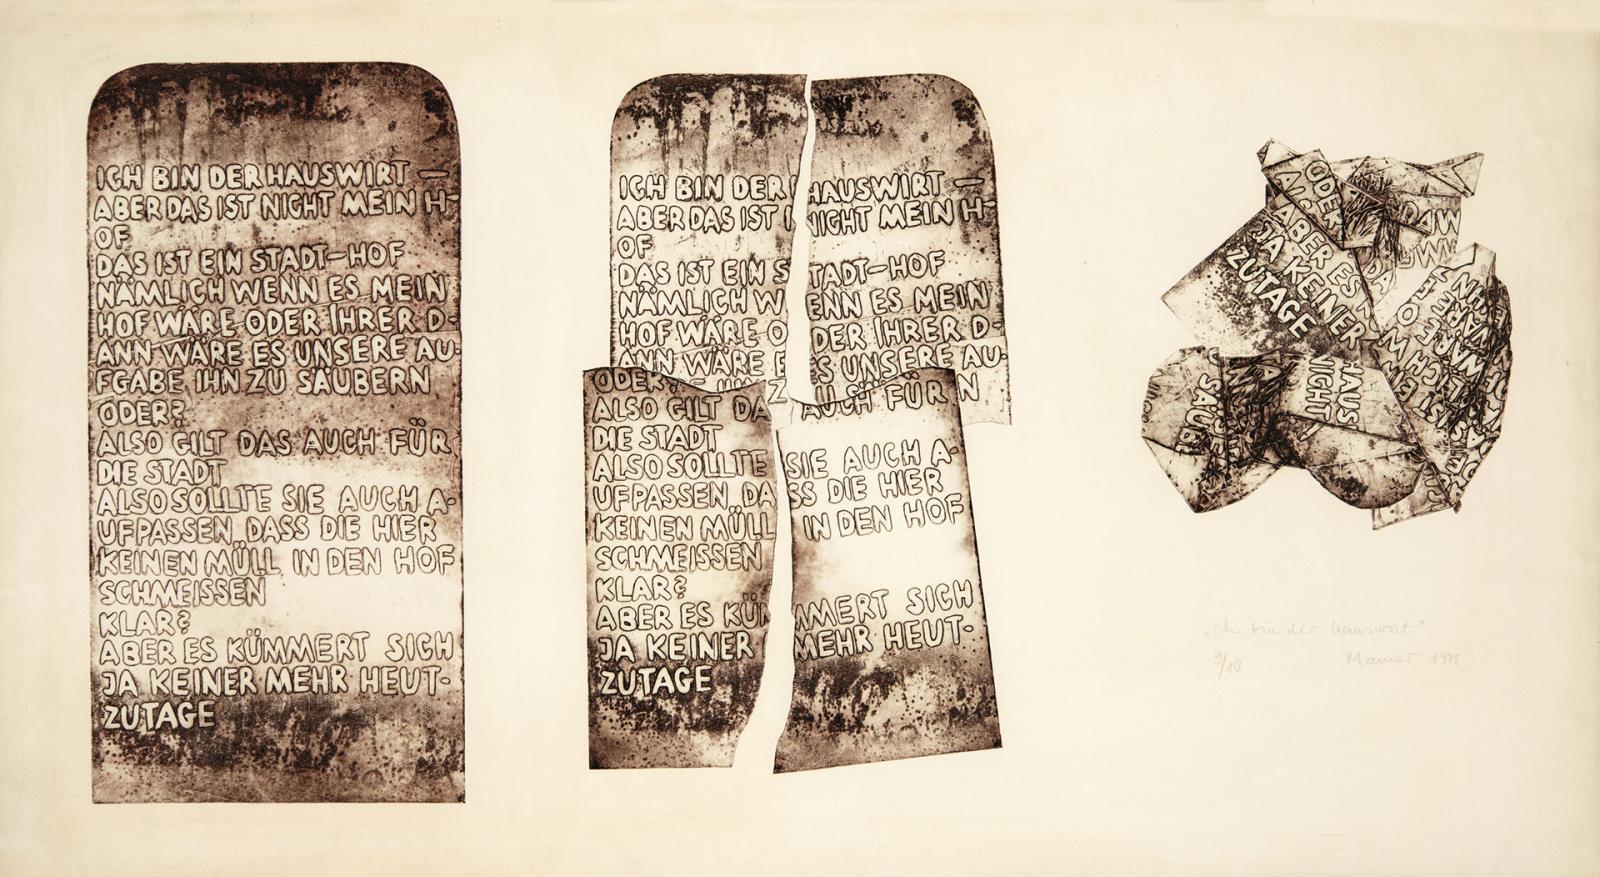 ICH BIN DER HAUSWIRT –
ABER DAS IST NICHT MEIN H-
OF
DAS IST EIN STADT-HOF
NÄMLICH WENN ES MEIN
HOF WÄRE ODER IHRER D-
ANN WÄRE ES UNSERE AU-
FGABE IHN ZU SÄUBERN
ODER?
ALSO GILT DAS AUCH FÜR
DIE STADT
ALSO SOLLTE SIE AUCH A-
UFPASSEN DASS DIE HIER
KEINEN MÜLL IN DEN HOF
SCHMEISSEN
KLAR?
ABER ES KÜMMERT SICH
JA KEINER MEHR HEUT-
ZUTAGE
ICH BIN DER HAUSWIRT –
ABER DAS IST NICHT MEIN H-
OF
DAS IST EIN STADT-HOF
NÄMLICH WENN ES MEIN
HOF WÄRE ODER IHRER D-
ANN WÄRE ES UNSERE AU-
N
ODER?
ALSO GILT DA AUCH FÜR
DIE STADT
ALSO SOLLTE SIE AUCH A-
UFPASSEN DASS DIE HIER
KEINEN MÜLL IN DEN HOF
SCHMEISSEN
KLAR?
ABER ES KÜMMERT SICH
JA KEINER MEHR HEUT-
ZUTAGE
ODER
ABER ES
JA KEINER
ZUTAGE
HAUS
NICHT
SÄUB
„ich bin der hauswirt“
9/10 1971